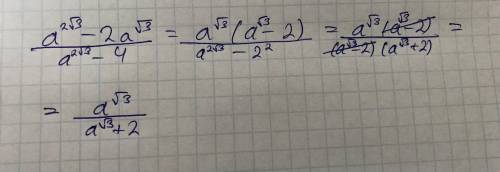 \frac{a^{2\sqrt{3}} - 2a^{\sqrt{3}}}{a^{2\sqrt{3}} - 4} = \frac{a^{\sqrt{3}}(a^{\sqrt{3}} - 2)}{a^{2\sqrt{3}} - 2^2} = \frac{a^{\sqrt{3}}(a^{\sqrt{3}} - 2)}{(a^{\sqrt{3}} - 2)(a^{\sqrt{3}} + 2)} =
= \frac{a^{\sqrt{3}}}{a^{\sqrt{3}} + 2}